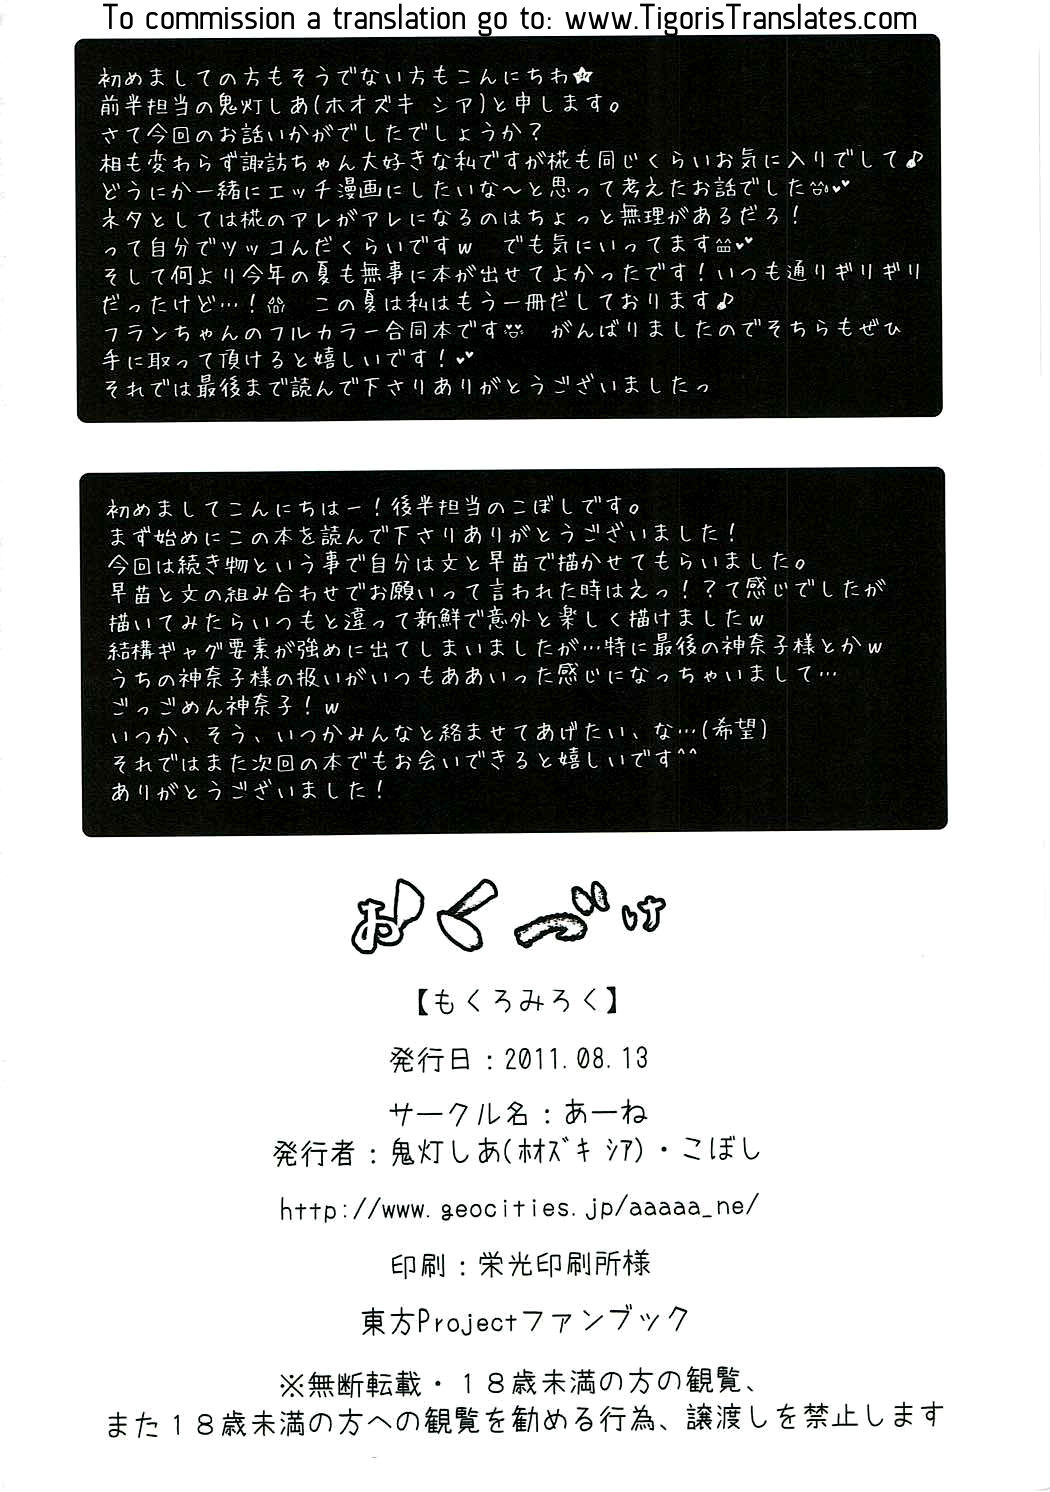 To commission a translation go to: www.TigorisTranslates.com
初めましての方もそうでない方もこんにちわ☆
前半担当の鬼灯しあ(ホオズキ シア)と申します。
さて今回のお話いかがでしたでしょうか？
相も変わらず諏訪ちゃん大好きな私ですが椛も同じくらいお気に入りでして♪
どうにか一緒にエッチ漫画にしたいな～と思って考えたお話でした♥♥
ネタとしては椛のアレがアレになるのはちょっと無理があるだろ！
って自分でツッコんだくらいですｗ　でも気にいってます♥♥
そして何より今年の夏も無事に本が出せてよかったです！いつも通りギリギリ
だったけど…！　この夏は私はもう一冊だしております♪
フランちゃんのフルカラー合同本です　がんばりましたのでそちらもぜひ
手に取って頂けると嬉しいです！♥♥
それでは最後まで読んで下さりありがとうございましたっ
初めましてこんにちはー！後半担当のこぼしです。
まず始めにこの本を読んで下さりありがとうございました！
今回は続き物という事で自分は文と早苗で描かせてもらいました。
早苗と文の組み合わせでお願いって言われた時はえっ！？て感じでしたが
描いてみたらいつもと違って新鮮で意外と楽しく描けましたｗ
結構ギャグ要素が強めに出てしまいましたが…特に最後の神奈子様とかｗ
うちの神奈子様の扱いがいつもああいった感じになっちゃいまして…
ごっごめん神奈子！ｗ
いつか、そう、いつかみんなと絡ませてあげたい、な…(希望)
それではまた次回の本でもお会いできると嬉しいです^^
ありがとうございました！
おくづけ
【もくろみろく】
発行日：2011.08.13
サークル名：あーね
発行者：鬼灯しあ(ﾎｵｽﾞｷ ｼｱ)・こぼし
http://www.geocities.jp/aaaaa_ne/
印刷：栄光印刷所様
東方Projectファンブック
※無断転載・１８歳未満の方の観覧、
また１８歳未満の方への観覧を勧める行為、譲渡しを禁止します